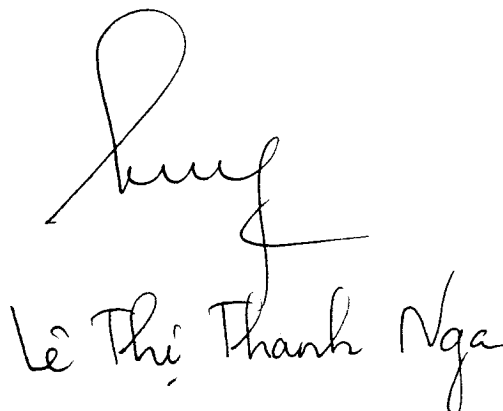 Lê Thị Thanh Nga